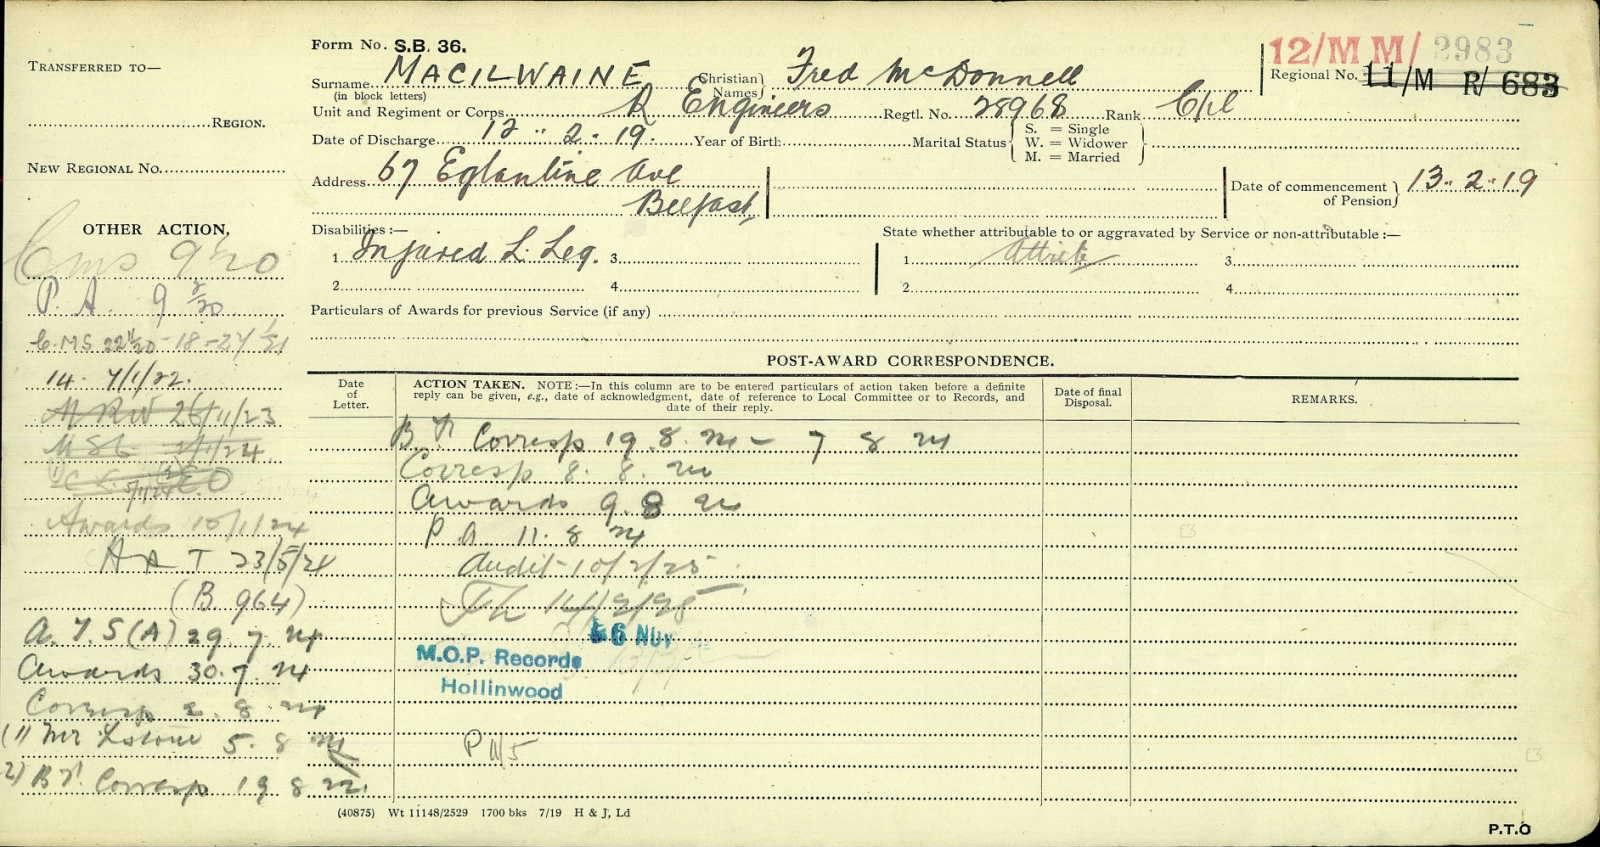 Form No. S.B. 36.
TRANSFERRED TO—
REGION.
NEW REGIONAL No.
Surname MACILWAINE Christian Names} Fred McDonnell
(in block letters)
12/M M/ 2983
Regional No. 11/M R/ 683
Unit and Regiment or Corps R Engineers Regtl. No. 28968 Rank Cpl
Date of Discharge 12.. 2. 19. Year of Birth Marital Status { S. = Single
W. = Widower
M. = Married }
Address 67 Eglantine Ave
Belfast
Date of commencement of Pension} 13.. 2.. 19
Disabilities :—
1 Injured L. Leg. 3
2 4
State whether attributable to or aggravated by Service or non-attributable :—
1 3
2 4
Particulars of Awards for previous Service (if any)
OTHER ACTION.
P. A. 9 2/20
C.M.S 22 - 18 - 27
14. 7/1/22.
M R W 26/11/23
2/1/24
Awards 10/1/24
A A T 23/5/24
(B 964)
A. T. S (A) 29. 7. 24
Awards 30. 7. 24
Corresp 2. 8. 24
(1) Mr 5. 8 24
2) Corresp 19 8 22.
POST-AWARD CORRESPONDENCE.
Date of Letter.
ACTION TAKEN. NOTE :—In this column are to be entered particulars of action taken before a definite
reply can be given, e.g., date of acknowledgment, date of reference to Local Committee or to Records, and
date of their reply.
Date of final Disposal.
REMARKS.
Corresp 19. 8. 24 – 7 8 24
Corresp 8. 8. 24
Awards 9. 8 24
P A 11. 8 24
Audit 10/2/25
6 NOV
M.O.P. Records
Hollinwood
P 11/5
(40875) Wt 11148/2529 1700 bks 7/19 H & J, Ld
P.T.O